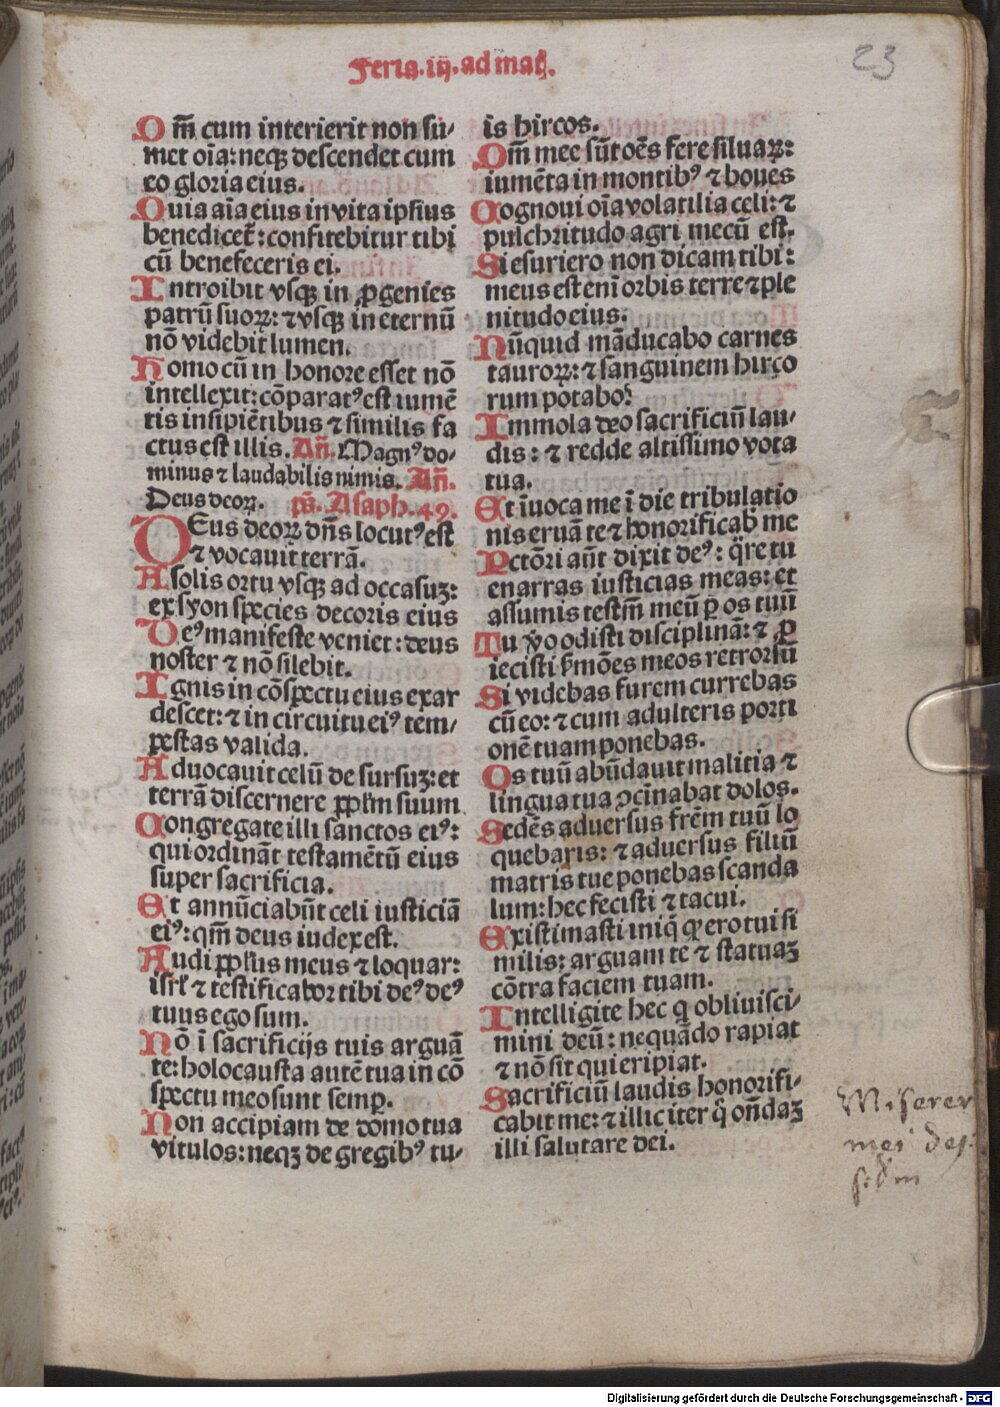 Feria.iij.ad mať.
23
Qm̃ cum interierit non su/
met oĩa: neqꝫ descendet cum
eo gloria eius.
Quia aĩa eius in vita ipsius
benedicet̃: confitebitur tibi
cũ benefeceris ei.
Introibit vsqꝫ in ꝓgenies
patrũ suoꝝ: ⁊ vsqꝫ in eternũ
nõ videbit lumen.
Homo cũ in honore esset nõ
intellexit: cõparatꝰ est iumẽ
tis insipiẽtibus ⁊ similis fa
ctus est illis. Añ. Magnꝰ do-
minus ⁊ laudabilis nimis. Añ.
Deus deoꝝ. p̃s. Asaph. .49.
DEus deoꝝ dñs locutꝰ est
⁊ vocauit terrã.
A solis ortu vsqꝫ ad occasuꝫ:
ex syon species decoris eius
Deꝰ manifeste veniet: deus
noster ⁊ nõ silebit.
Ignis in cõspectu eius exar
descet: ⁊ in circuitu eiꝰ tem/
pestas valida.
Aduocauit celũ de sursuꝫ: et
terrã discernere ppl'm suum
Congregate illi sanctos eiꝰ:
qui ordinãt testamẽtũ eius
super sacrificia.
Et annũciabũt celi iusticiã
eiꝰ: qm̃ deus iudex est.
Audi ppl'us meus ⁊ loquar:
isrl' ⁊ testificabor tibi deꝰ deꝰ
tuus ego sum.
Nõ ĩ sacrificijs tuis arguã
te: holocausta autẽ tua in cõ
spectu meo sunt semp̱.
Non accipiam de domo tua
vitulos: neqꝫ de gregibꝰ tu-
is hircos.
Qm̃ mee sũt oẽs fere siluaꝝ:
iumẽta in montibꝰ ⁊ boues
Cognoui oĩa volatilia celi: ⁊
pulchritudo agri mecũ est.
Si esuriero non dicam tibi:
meus est eni orbis terre ⁊ ple
nitudo eius.
Nũquid mãducabo carnes
tauroꝝ: ⁊ sanguinem hirco
rum potabo?
Immola deo sacrificiũ lau-
dis: ⁊ redde altissimo vota
tua.
Et ĩuoca me ĩ die tribulatio
nis eruã te ⁊ honorificab' me
Pctõri aũt dixit deꝰ: q̃re tu
enarras iusticias meas: et
assumis testm̃ meũ p̱ os tuũ
Tu ṽo odisti disciplinã: ⁊ ꝓ
iecisti s̃mões meos retrorsũ
Si videbas furem currebas
cũ eo: ⁊ cum adulteris porti
onẽ tuam ponebas.
Os tuũ abũdauit malitia ⁊
lingua tua ↄcĩnabat dolos.
Sedẽs aduersus frẽm tuũ lo
quebaris: ⁊ aduersus filiũ
matris tue ponebas scanda
lum: hec fecisti ⁊ tacui.
Existimasti iniq̃ ꝙ ero tui si
milis: arguam te ⁊ statuaꝫ
cõtra faciem tuam.
Intelligite hec q̃ obliuisci/
mini deũ: nequãdo rapiat
⁊ nõ sit qui eripiat.
Sacrificiũ laudis honorifi/
cabit me: ⁊ illic iter q̃ oñdaꝫ
illi salutare dei.
Miserer
mei deꝰ
Digitalisierung gefördert durch die Deutsche Forschungsgemeinschaft - DFG